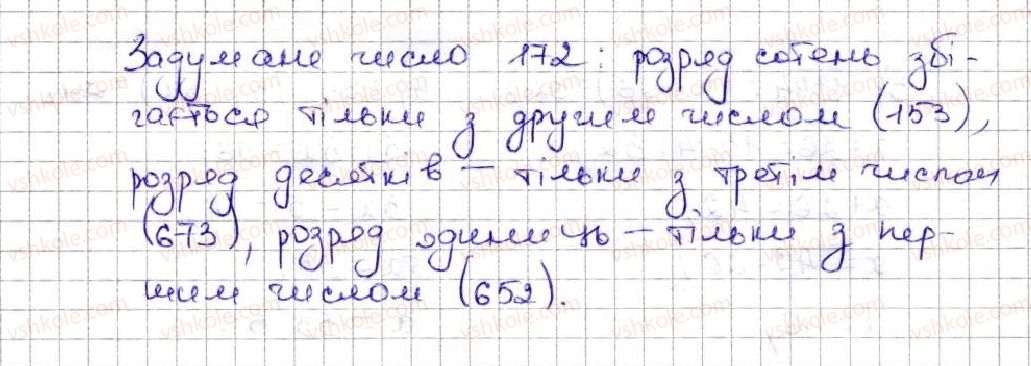 Задумане число 172: розряд сотень збі-
гається тільки з другим числом (153),
розряд десятків – тільки з третім числом
(673), розряд одиниць – тільки з пер-
шим числом (652).